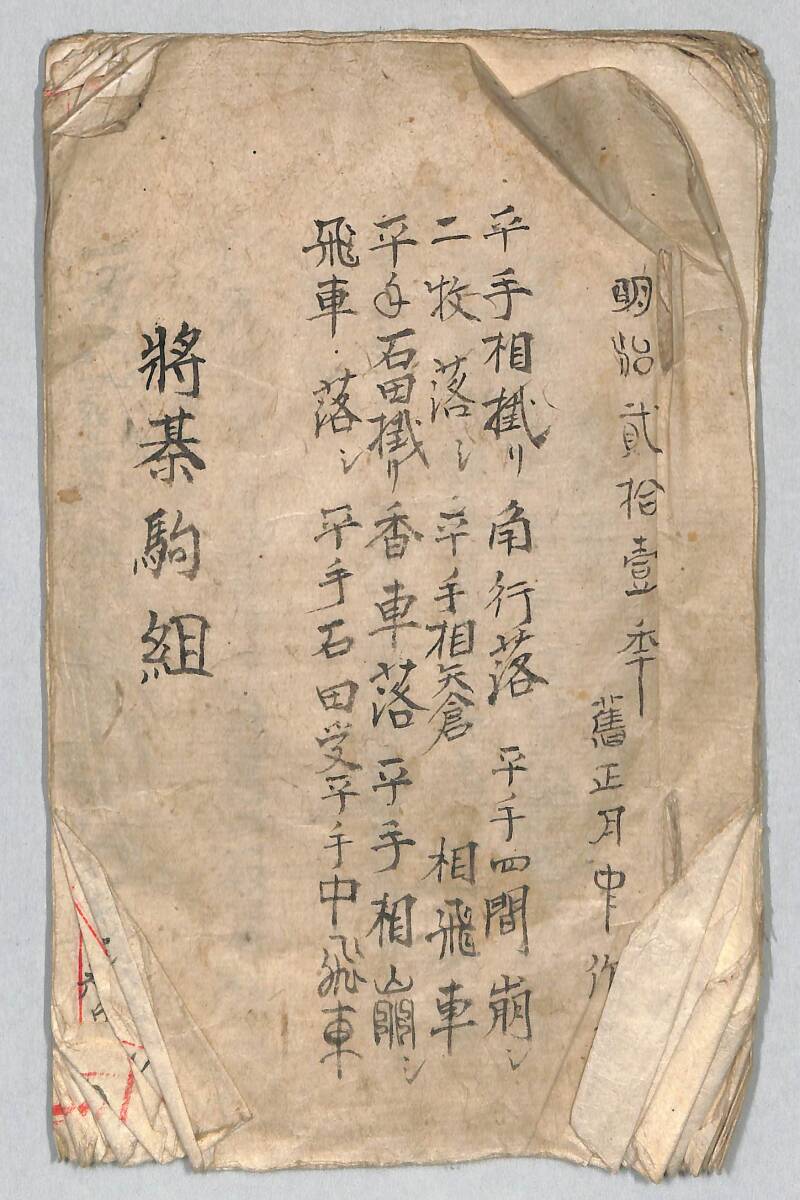 明治貳拾壹年
舊正月中作
平手相掛リ 角行落 平手四間崩シ
二牧落シ 平手相矢倉 相飛車
平手石田掛リ 香車落 平手相崩シ
飛車落シ 平手石田受平手中飛車
將棊駒組